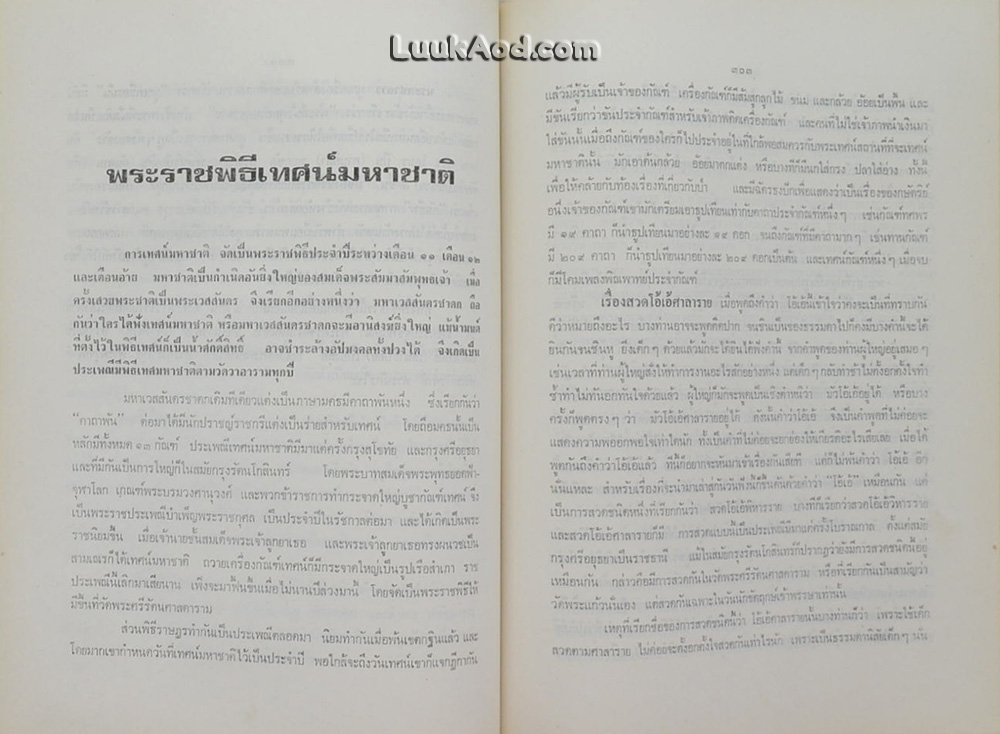 LuukAod.com
พระราชพิธีเทศน์มหาชาติ
การเทศน์มหาชาติ จัดเป็นพระราชพิธีประจำปีระหว่างเดือน ๑๑ เดือน ๑๒
และเดือนอ้าย มหาชาติเป็นกำเนิดอันยิ่งใหญ่ของสมเด็จพระสัมมาสัมพุทธเจ้า เมื่อ
ครั้งเสวยพระชาติเป็นพระเวสสันดร จึงเรียกอีกอย่างหนึ่งว่า มหาเวสสันดรชาดก ถือ
กันว่าใครได้ฟังเทศน์มหาชาติ หรือมหาเวสสันดรชาดกจะมีอานิสงส์ยิ่งใหญ่ แม้น้ำมนต์
ที่ตั้งไว้ในพิธีเทศน์ก็เป็นน้ำศักดิ์สิทธิ์ อาจชำระล้างอัปมงคลทั้งปวงได้ จึงเกิดเป็น
ประเพณีมีพิธีเทศมหาชาติตามวัดวาอารามทุกปี
มหาเวสสันดรชาดกเดิมทีเดียวแต่งเป็นภาษามคธมีคาถาพันหนึ่ง ซึ่งเรียกกันว่า
"คาถาพัน" ต่อมาได้มีนักปราชญ์ราชกวีแต่งเป็นร่ายสำหรับเทศน์ โดยถือมคธนั้นเป็น
หลักมีทั้งหมด ๑๓ กัณฑ์ ประเพณีเทศน์มหาชาติมีมาแต่ครั้งกรุงสุโขทัย และกรุงศรีอยุธยา
และที่มีกันเป็นการใหญ่ก็ในสมัยกรุงรัตนโกสินทร์ โดยพระบาทสมเด็จพระพุทธยอดฟ้า-
จุฬาโลก เกณฑ์พระบรมวงศานุวงศ์ และพวกข้าราชการทำกระจาดใหญ่บูชากัณฑ์เทศน์ จึง
เป็นพระราชประเพณีบำเพ็ญพระราชกุศล เป็นประจำปีในรัชกาลต่อมา และได้เกิดเป็นพระ
ราชนิยมขึ้น เมื่อเจ้านายชั้นสมเด็จพระเจ้าลูกยาเธอ และพระเจ้าลูกยาเธอทรงผนวชเป็น
สามเณรก็ได้เทศน์มหาชาติ ถวายเครื่องกัณฑ์เทศน์ก็มีกระจาดใหญ่เป็นรูปเรือสำเภา ราช
ประเพณีนี้เลิกมาเสียนาน เพิ่งจะมาฟื้นขึ้นเมื่อไม่นานปีล่วงมานี้ โดยจัดเป็นพระราชพิธีให้
มีขึ้นที่วัดพระศรีรัตนศาสดาราม
ส่วนพิธีราษฎรทำกันเป็นประเพณีตลอดมา นิยมทำกันเมื่อพ้นเขตกฐินแล้ว และ
โดยมากเขากำหนดวันที่เทศน์มหาชาติไว้เป็นประจำปี พอใกล้จะถึงวันเทศน์เขาก็แจกฎีกากัน
๓๐๓
แล้วมีผู้รับเป็นเจ้าของกัณฑ์ เครื่องกัณฑ์ก็มีส้มสุกลูกไม้ ขนม และกล้วย อ้อยเป็นพื้น และ
มีขันเรียกว่าขันประจำกัณฑ์สำหรับเจ้าภาพติดเครื่องกัณฑ์ และคนที่ไม่ใช่เจ้าภาพนำเงินมา
ใส่ขันนั้นเมื่อถึงกัณฑ์ของใครก็ไปประจำอยู่ในที่ใกล้พอสมควรกับพระเทศน์สถานที่ที่จะเทศน์
มหาชาตินั้น มักเอาต้นกล้วย อ้อยมาตกแต่ง หรือบางทีก็มีนกใส่กรง ปลาใส่อ่าง ทั้งนี้
เพื่อให้คล้ายกับท้องเรื่องที่เกี่ยวกับป่า และมีฉัตรธงปักเพื่อแสดงว่าเป็นเรื่องของกษัตริย์
อนึ่งเจ้าของกัณฑ์เขามักเตรียมเอาธูปเทียนเท่ากับคาถาประจำกัณฑ์หนึ่งๆ เช่นกัณฑ์ทศพร
มี ๑๙ คาถา ก็นำธูปเทียนมาอย่างละ ๑๙ ดอก จนถึงกัณฑ์ที่มีคาถามากๆ เช่นทานกัณฑ์
มี ๒๐๙ คาถา ก็นำธูปเทียนมาอย่างละ ๒๐๙ ดอกเป็นต้น และเทศน์กัณฑ์หนึ่งๆ เมื่อจบ
ก็มีโคมเพลงพิณพาทย์ประจำกัณฑ์
เรื่องสวดโอ้เอ้ศาลาราย เมื่อพูดถึงคำว่า โอ้เอ้นี้เข้าใจว่าคงจะเป็นที่ทราบกัน
ดีว่าหมายถึงอะไร บางท่านอาจจะพูดติดปาก จนชินเป็นของธรรมดาไปก็คงมีบางคำนี้จะได้
ยินกันเช่นชินหู ยิ่งเด็กๆ ด้วยแล้วมักจะได้ยินได้ฟังคำนี้ จากคำพูดของท่านผู้ใหญ่อยู่เสมอๆ
เช่นเวลาที่ท่านผู้ใหญ่สั่งให้ทำการงานอะไรสักอย่างหนึ่ง แต่เด็กๆ กลับทำช้าไม่ตั้งอกตั้งใจทำ
ซ้ำทำไม่ทันอกทันใจด้วยแล้ว ผู้ใหญ่ก็มักจะพูดเป็นเชิงตำหนิว่า มัวโอ้เอ้อยู่ได้ หรือบาง
ครั้งก็พูดตรงๆ ว่า มัวโอ้เอ้ศาลารายอยู่ได้ ดังนั้นคำว่าโอ้เอ้ จึงเป็นคำพูดที่ไม่ค่อยจะ
แสดงความพออกพอใจเท่าใดนัก ทั้งเป็นคำที่ไม่ค่อยจะยกย่องให้เกียรติอะไรเสียเลย เมื่อได้
พูดกันถึงคำว่าโอ้เอ้แล้ว ทีนี้ก็อยากจะหันมาเข้าเรื่องกันเสียที แต่ก็ไม่พ้นคำว่า โอ้เอ้ อีก
นั่นแหละ สำหรับเรื่องที่จะนำมาเล่าสู่กันวันฟังนี้ก็ขึ้นต้นด้วยคำว่า "โอ้เอ้" เหมือนกัน แต่
เป็นการสวดชนิดหนึ่งที่เรียกกันว่า สวดโอ้เอ้วิหารราย บางทีก็เรียกว่าสวดโอ้เอ้วิหารราย
และสวดโอ้เอ้ศาลารายก็มี การสวดแบบนี้เป็นประเพณีมีมาแต่ครั้งโบราณกาล ตั้งแต่สมัย
กรุงศรีอยุธยาเป็นราชธานี แม้ในสมัยกรุงรัตนโกสินทร์ก็ปรากฏว่ายังมีการสวดชนิดนี้อยู่
เหมือนกัน กล่าวคือมีการสวดกันในวัดพระศรีรัตนศาสดาราม หรือที่เรียกกันเป็นสามัญว่า
วัดพระแก้วนั่นเอง แต่สวดกันเฉพาะในวันนักขัตฤกษ์เข้าพรรษาเท่านั้น
เหตุที่เรียกชื่อของการสวดชนิดนี้ว่า โอ้เอ้ศาลารายนั้นบางท่านก็ว่า เพราะใช้เด็ก
สวดตามศาลาราย ไม่ค่อยจะตั้งอกตั้งใจสวดกันเท่าไรนัก เพราะเป็นธรรมดานิสัยเด็กๆ นั้น